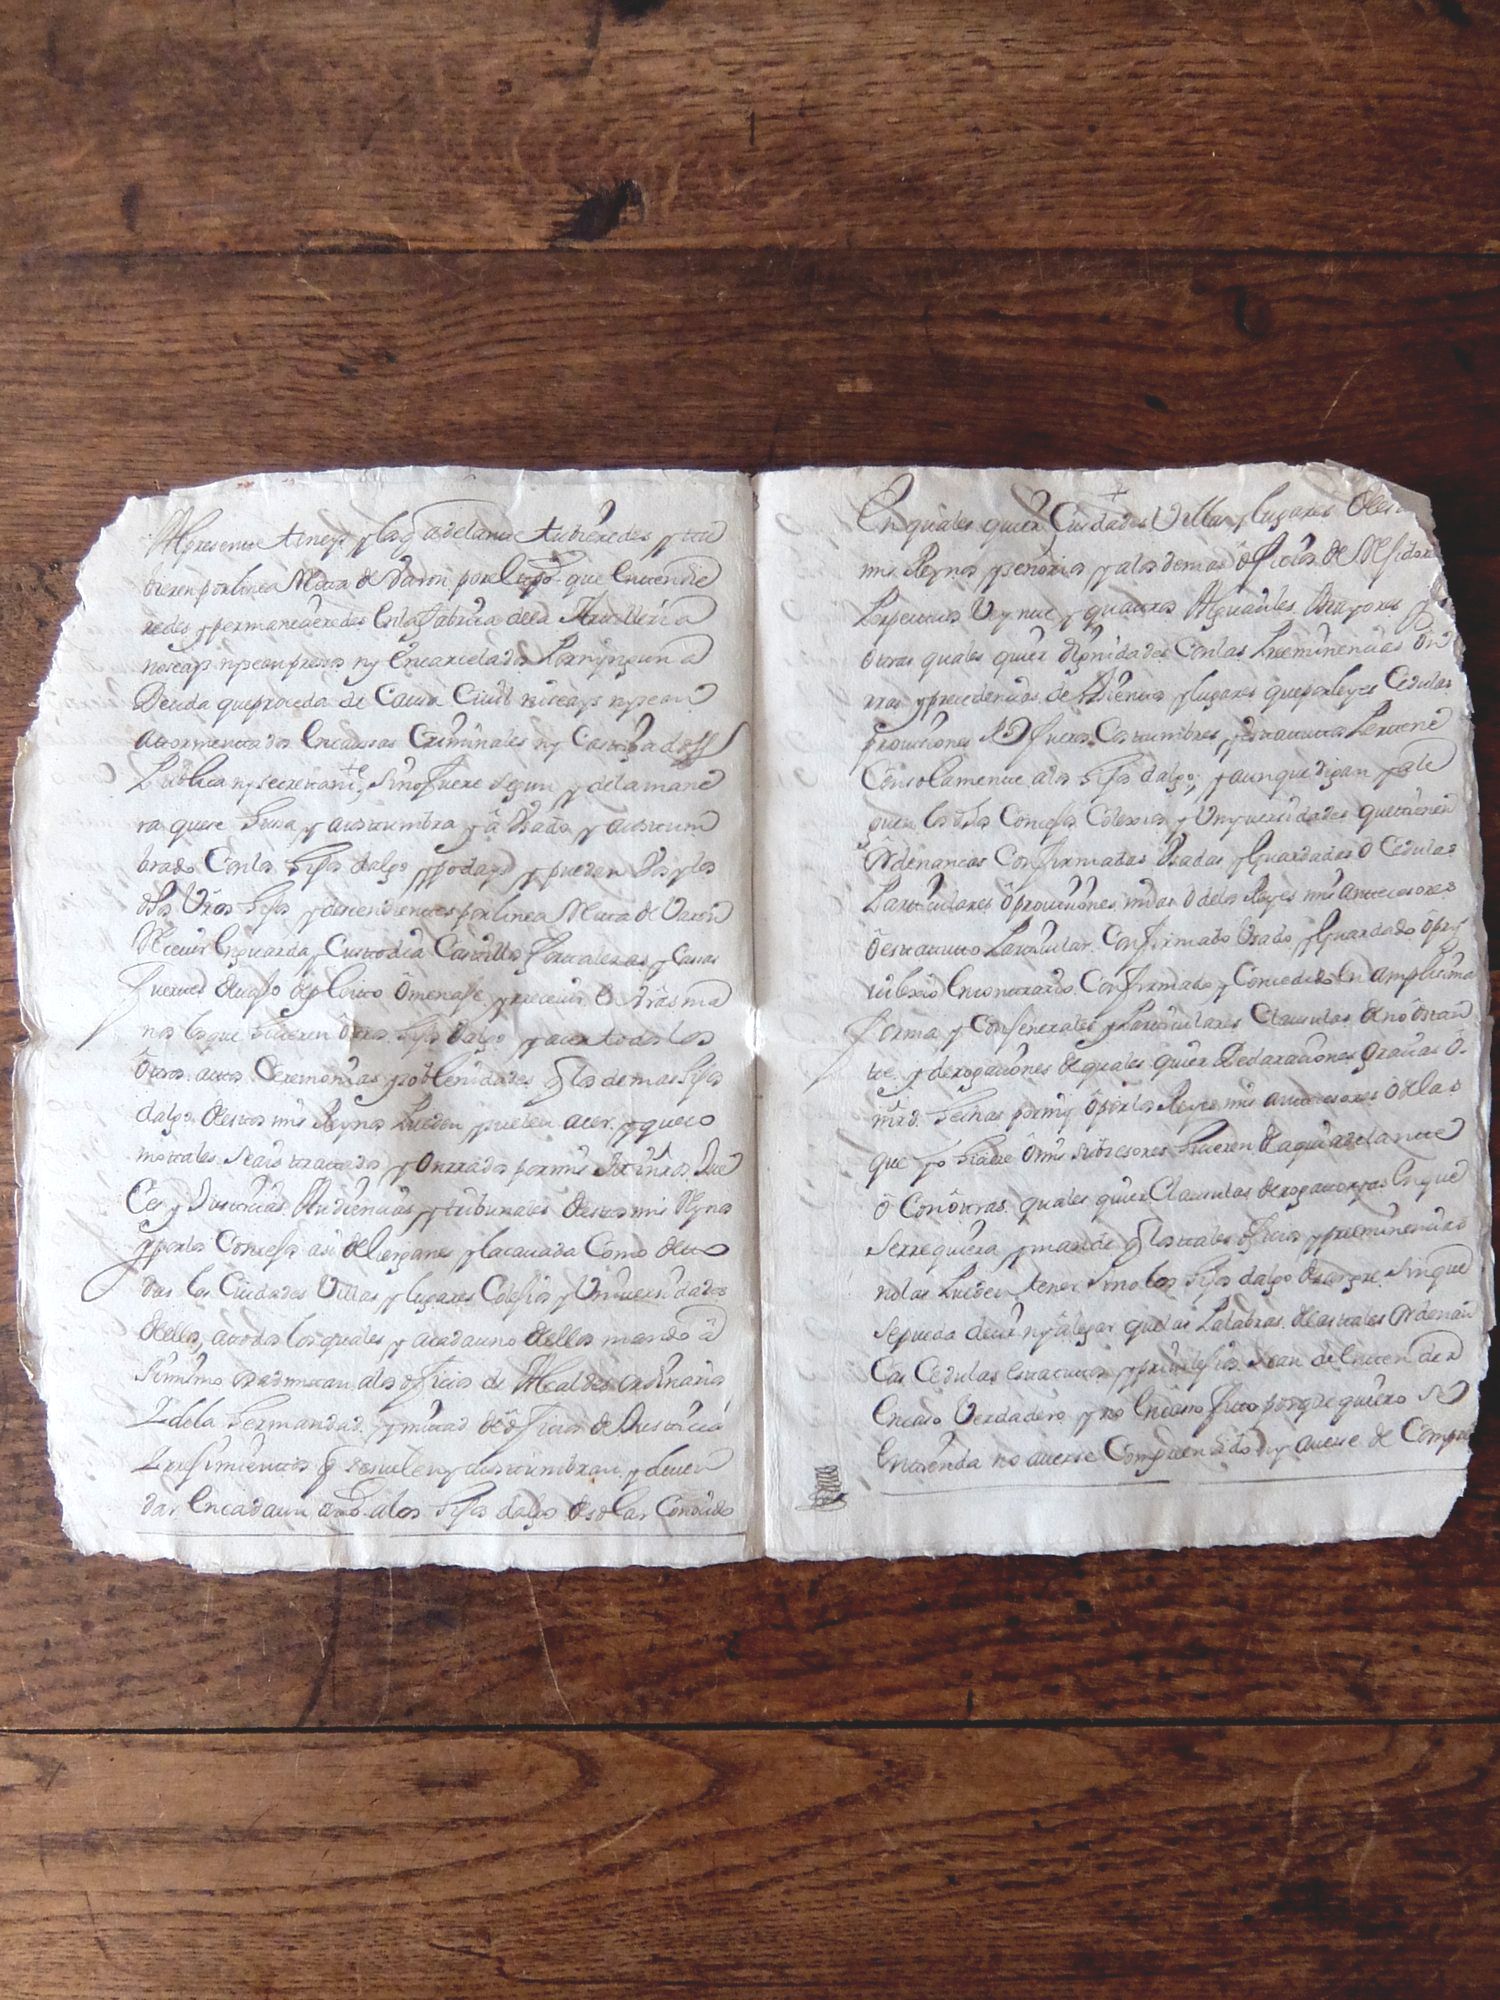 Alpresente teneys y los q adelante tubieredes y tu
bieren por linea Recta de Varon por el tpo. que entendie
redes y permanecieredes en la fabrica dela Artilleria
no seays ny sean presos ny encarcelados Por ningun a
Deuda que proceda de Causa Civil ni seays ny sean
atormentados en causas Criminales ny Castigados
Publica ny secretamte, Sino fuere segun y dela mane
ra que se Husa y acostumbra y â Usado y acostum
brado Con los Hijos dalgo y podays y puedan Vos y los
dhos Vros Hijos y descendientes por linea Recta de Varon
Recivir en guarda y Custodia Castillos fortalezas y Casas
fuertes devajo de pleito ômenaje y recevir en Vras ma
nos los que hicieren ôtros Hijos dalgo y acer todos los
ôtros autos Ceremonias y solenidades q los demas Hijos
dalgo destos mis Reynos Pueden y suelen acer y que co
mo tales seais tratados y onrrados por mis Ministros Jue
Ces y Justicias Audiencias y tribunales destos mis Rynos
y por los Concejos asi de lierganes y la cavada Como de to
das las Ciudades Villas y lugares Colejios y Universidades
dellos, a todos los quales y a cada uno dellos mando â
Simismo os admitan a los oficios de Alcaldes ordinarios
Y dela Hermandad y mitad de ôficios de Justicia
Y rejimientos q se suelen y acostumbran y deven
dar en cada un año a los Hijos dalgo de solar Conocido
En quales quier Ciudades Villas y lugares destos
mis Reynos y señorios y a los demas ôficios de Rejidores
Perpetuos Veynte y quatros Alguaciles Mayores y
ôtras quales quier dignidades Con las Preeminencias ôn
rras y precedencias de Asientos y lugares que por leyes Cedulas
provisiones R.s fueros Costumbres y estatutos Pertene
Con solamente a los Hijos dalgo; y aunque digan y ale
guen los dhos Concejos Colexios y Unyversidades que tienen
Ordenanzas Confirmadas Usadas y Guardadas o Cedulas
Particulares ô provisiones mias ô delos Reyes mis antecesores
ô estatuto Particular Confirmado Usado y Guardado ô pry
vilexio en contrario Confirmado y Concedido en amplisima
forma y Con Jenerales y Particulares Clausulas de no ôstan
te y derogaciones de quales quier Declaraciones gracias ô
mrd. hechas por my ô por los Reyes mis antecesores o delas
que yo hiciere ô mis subcesores hicieren de aqui adelante
ô Con ôtras quales quier Clausulas derogatorias en que
se rrequiera y mande q los tales oficios y preeminencias
no las Pueden tener sino los Hijos dalgo de sangre sin que
se pueda decir ny alegar que las Palabras de las tales ordenan
Cas Cedulas estatutos y privilejios sean de entender
en caso Verdadero y no en caso ficto porque quiero se
entienda no averse Comprendido ny averse de Compre